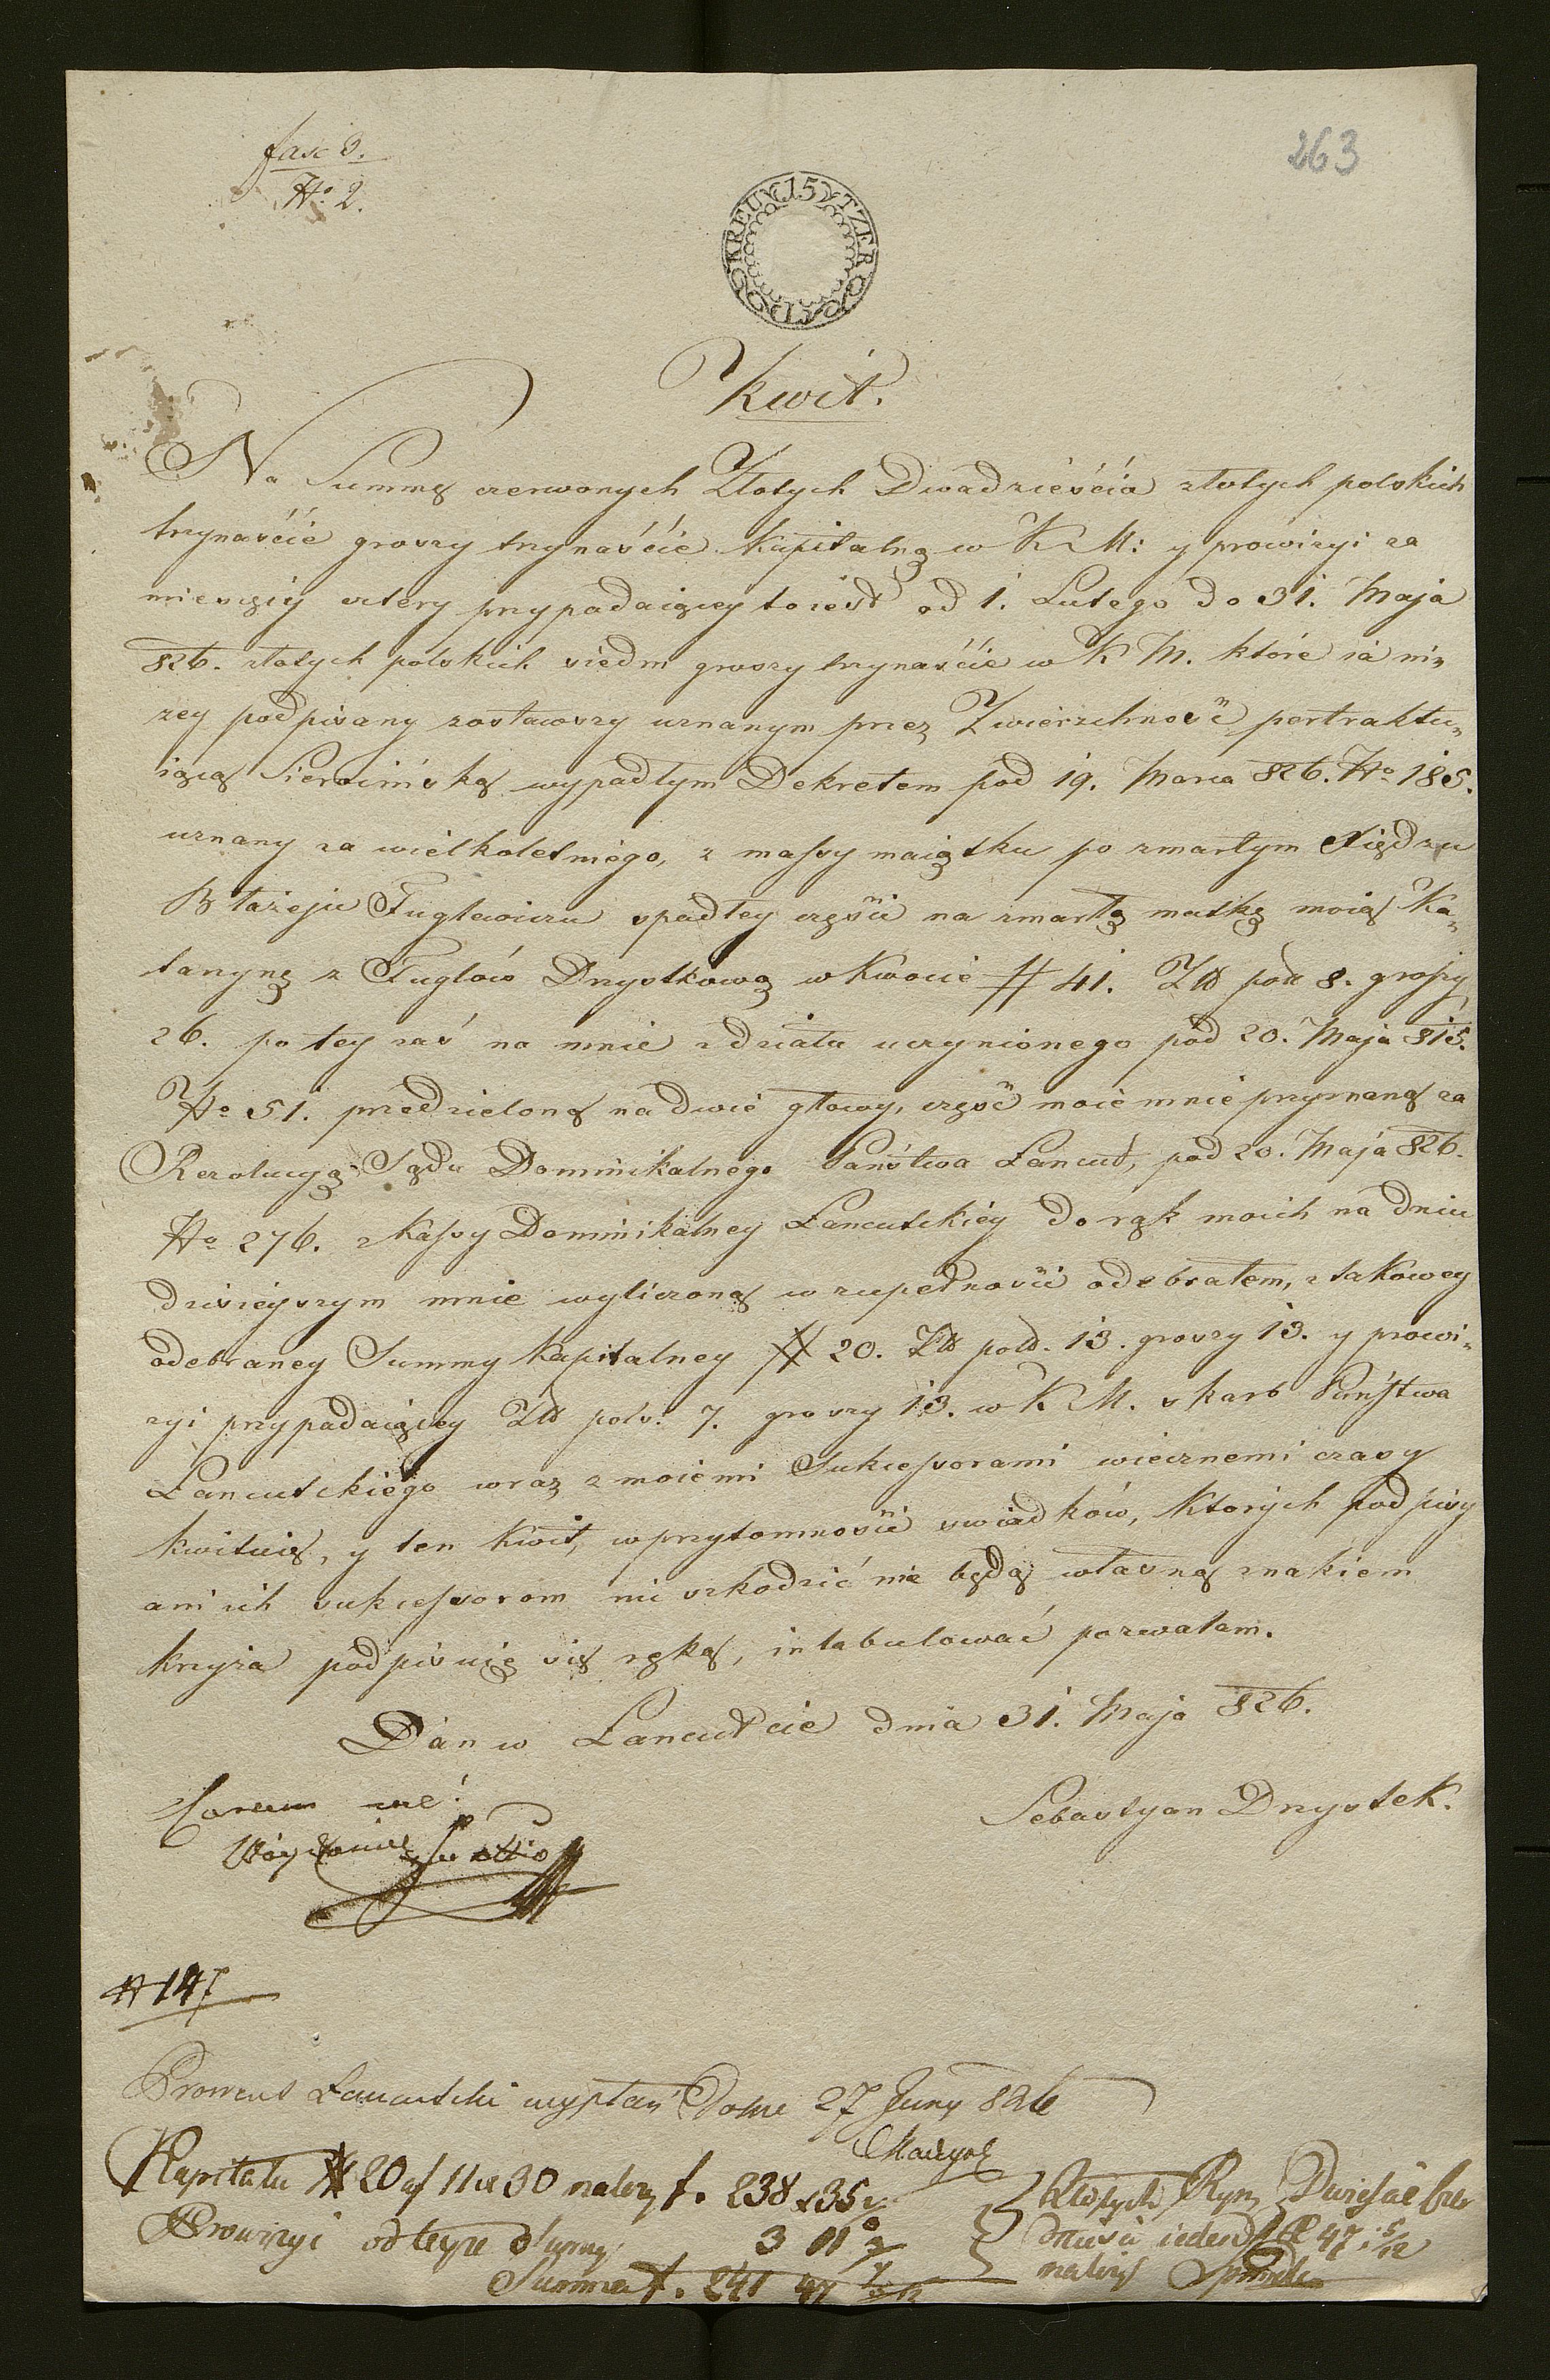 fasc 3.
No 2.
263
15 KREUTZER
Kwit.
Na Summę czerwonych Złotych Dwadzieścia złotych polskich
trzynaście groszy trzynaście Kapitalną w K M: y prowizyi za
miesięcy cztery przypadaiącey to iest od 1. Lutego do 31. Maja
826. złotych polskich siedm groszy trzynaście w K M. które ia ni=
zey podpisany zostawszy uznanym przez Zwierzchność pertraktu=
iącą Sierocińską wypadłym Dekretem pod 19. Marca 826. No 185.
uznany za wielkoletniego, z massy maiątku po zmarłym Xiędzu
Błażeju Fuglewiczu spadłey części na zmarłą matkę moią Ka=
tarzynę z Fuglów Drzystkową w Kwocie # 41. Zł pol 8. groszy
26. po tey zaś na mnie zdziału uczynionego pod 20. Maja 815.
No 51. przedzieloną na dwie głowy, część moie mnie przyznaną za
Rezolucyą Sądu Dominikalnego Państwa Łancut, pod 20. Maja 826.
No 276. z Kassy Dominikalney Łancutskiey do rąk moich na dniu
dzisieyszym mnie wyliczoną w zupełności odebrałem, z takowey
odebraney Summy Kapitalney # 20. Zł pols. 13. groszy 13. y prowi=
zyi przypadaiącey Zł pols. 7. groszy 13. w K M. skarb Państwa
Łancutskiego wraz z moiemi Sukcessorami wiecznemi czasy
kwituię, y ten Kwit, w przytomności swiadków, Których podpisy
ani ich sukcessorom nic szkodzić nie będą własną znakiem
krzyża podpisuię się ręką, intabulować pozwalam.
Dan w Łancutcie dnia 31. Maja 826.
Coram me!
Sebastyan Drzystek.
# 147
Prowent Łancutski wypłaci Dato 27 Juny 826
Kapitału # 20 af 11 x 30 należy f. 238 x 35
Prowizyi od teyże Sumy 3 11
Summa f. 241 47
Złotych Ryn Dwieście czter
dzieści ieden x 47 5/12
należy